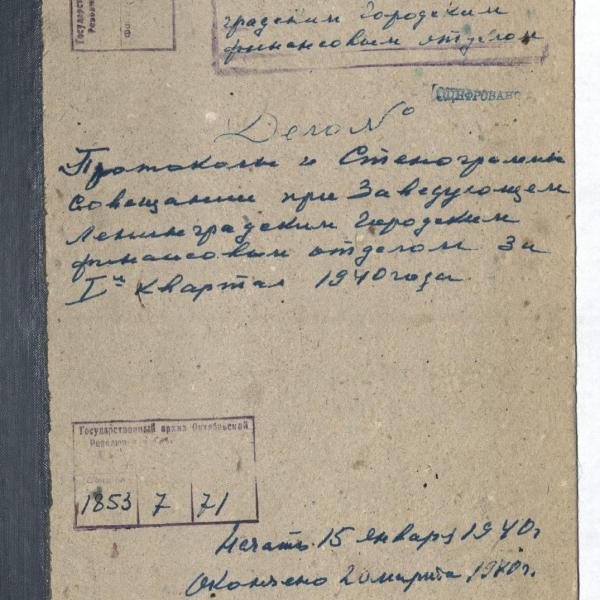 Государственный
градским Городским
финансовым отделом
ОЦИФРОВАНО
Дело №
Протоколы и Стенограммы
совещании при Заведующем
Ленинградским Городским
финансовым отделом за
I й квартал 1940 года
Государственный архив Октябрьской
1853 7 71
Начато 15 января 1940 г
Окончено 20 марта 1940 г.